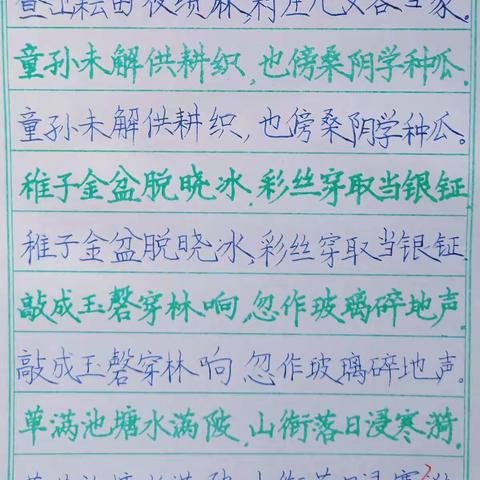 昼出耘田夜绩麻,村庄儿女各当家.
童孙未解供耕织,也傍桑阴学种瓜.
童孙未解供耕织,也傍桑阴学种瓜。
稚子金盆脱晓冰,彩丝穿取当银钲
稚子金盆脱晓冰,彩丝穿取当银钲.
敲成玉磬穿林响,忽作玻璃碎地声.
敲成玉磬穿林响 忽作玻璃碎地声。
草满池塘水满陂,山衔落日浸寒漪.